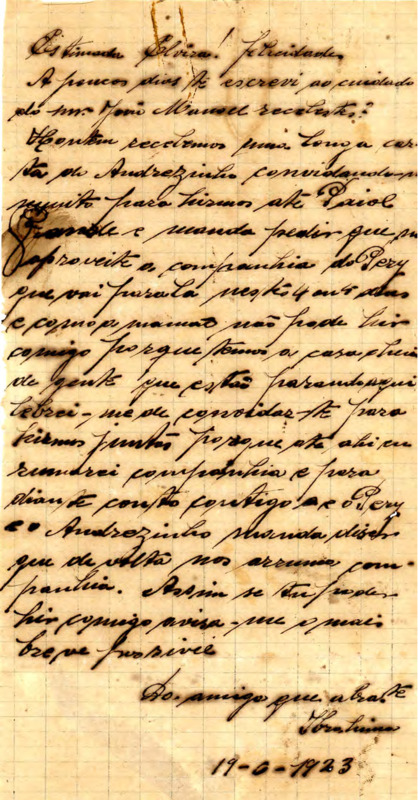 Estimada Elvira! felicidades
A poucos dias te escrevi ao cuidado
do snr. João Manoel recebeste?
Hontem recebemos uma longa car-
ta do Andrezinho convidando-
muito para hirmos até Paiol
Grande e manda pedir que
aproveite a companhia do Pery
que vai para la nestes 4 ou 5 dias
e como a mamai não pode hir
comigo porque temos a casa cheia
de gente que estão parando aqui
lebrei-me de convidar-te para
hirmos juntas porque até ahi eu
rumarei companhia e para
diante conto contigo e o Pery
e o Andrezinho manda diser
que de volta nos arruma com-
panhia. Assim se tu podes
hir comigo avisa-me o mais
breve possivel
Do amigo que abraça-te
19-6-1923